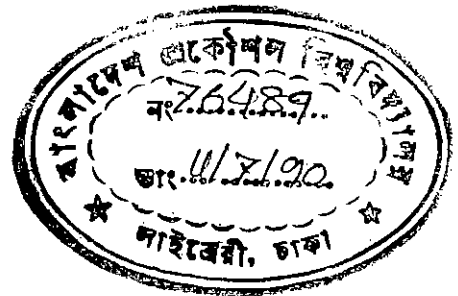 বাংলাদেশ প্রকৌশল বিশ্ববিদ্যালয়
নং 76489
তাং 11/7/90
লাইব্রেরী, ঢাকা